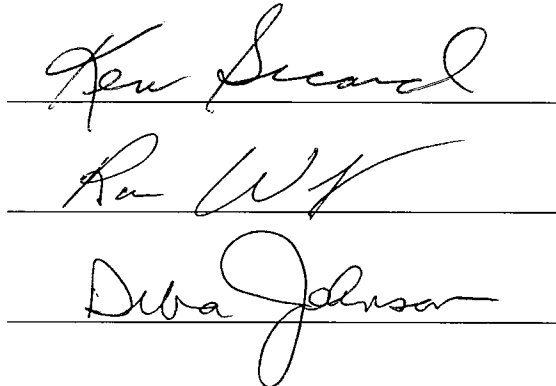 Ken Sicard
Ron
Debra Johnson